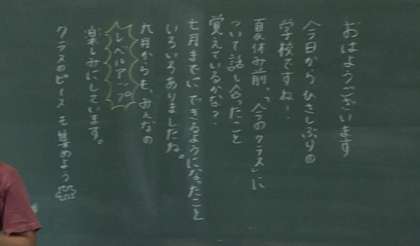 おはようございます
今日からひさしぶりの
学校ですね!
夏休み前、「今のクラス」に
ついて話し合ったこと
覚えているかな?
七月までにできるようになったこと
いろいろありましたね。
九月からも、みんなの
レベルアップ
楽しみにしています。
クラスのピース も集めよう